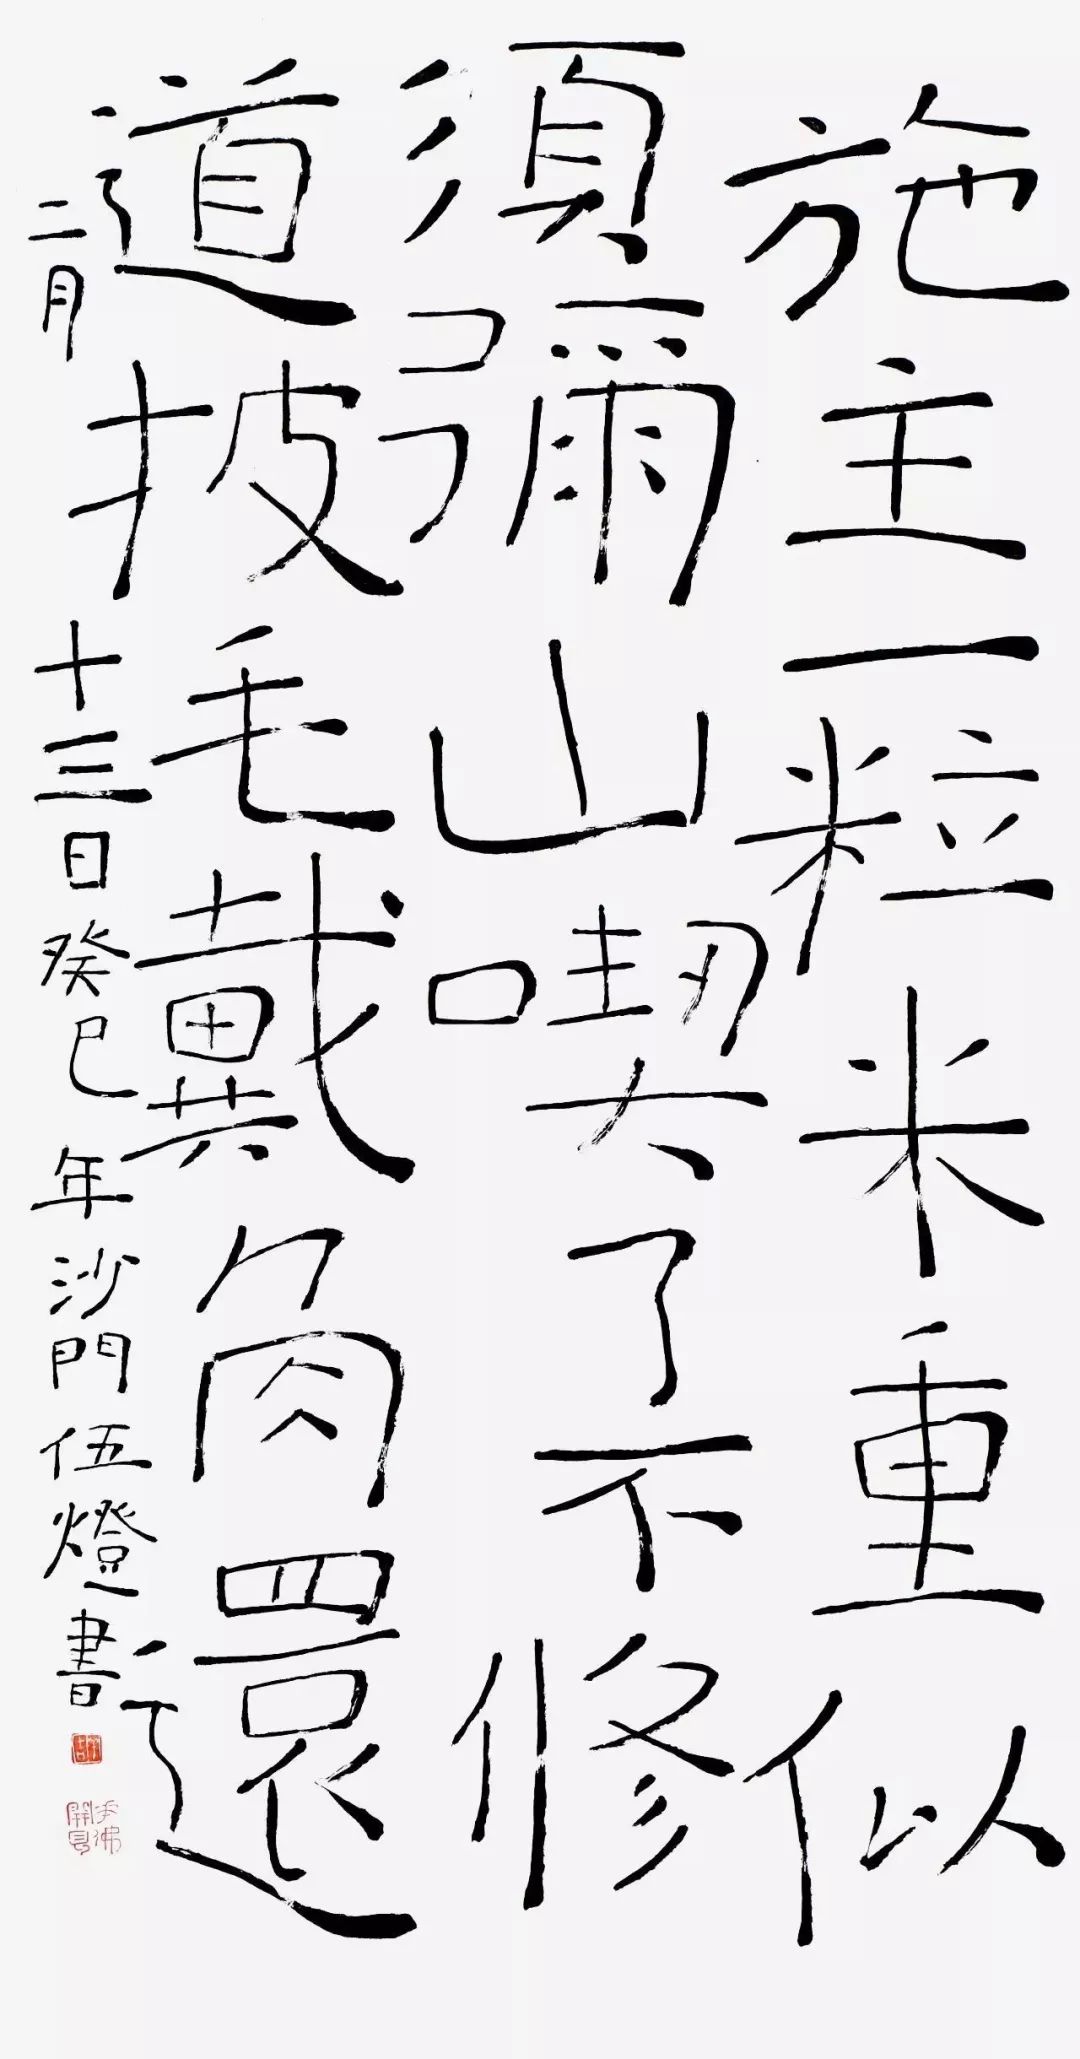 施主一粒米重似
須彌山喫了不修
道披毛戴角還
二月十三日癸巳年沙門伍燈書